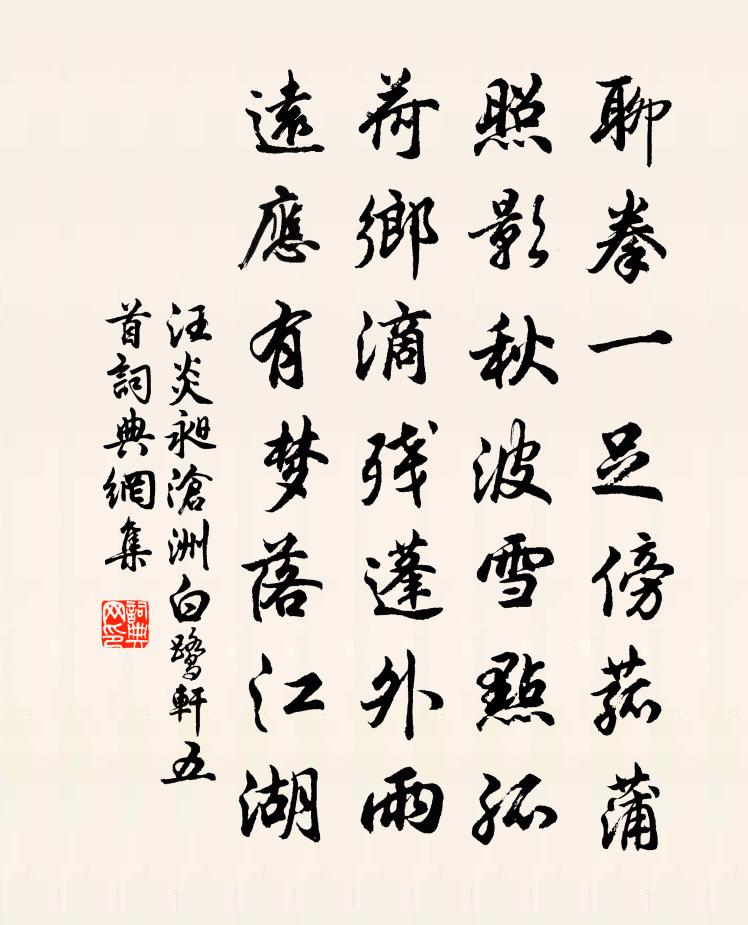 聊拳一足傍菰蒲
照影秋波雪點孤
荷鄉滴殘蓬外雨
遠應有梦落江湖
汪炎昶滄洲白鹭軒五
首詞典網集
詞典網印